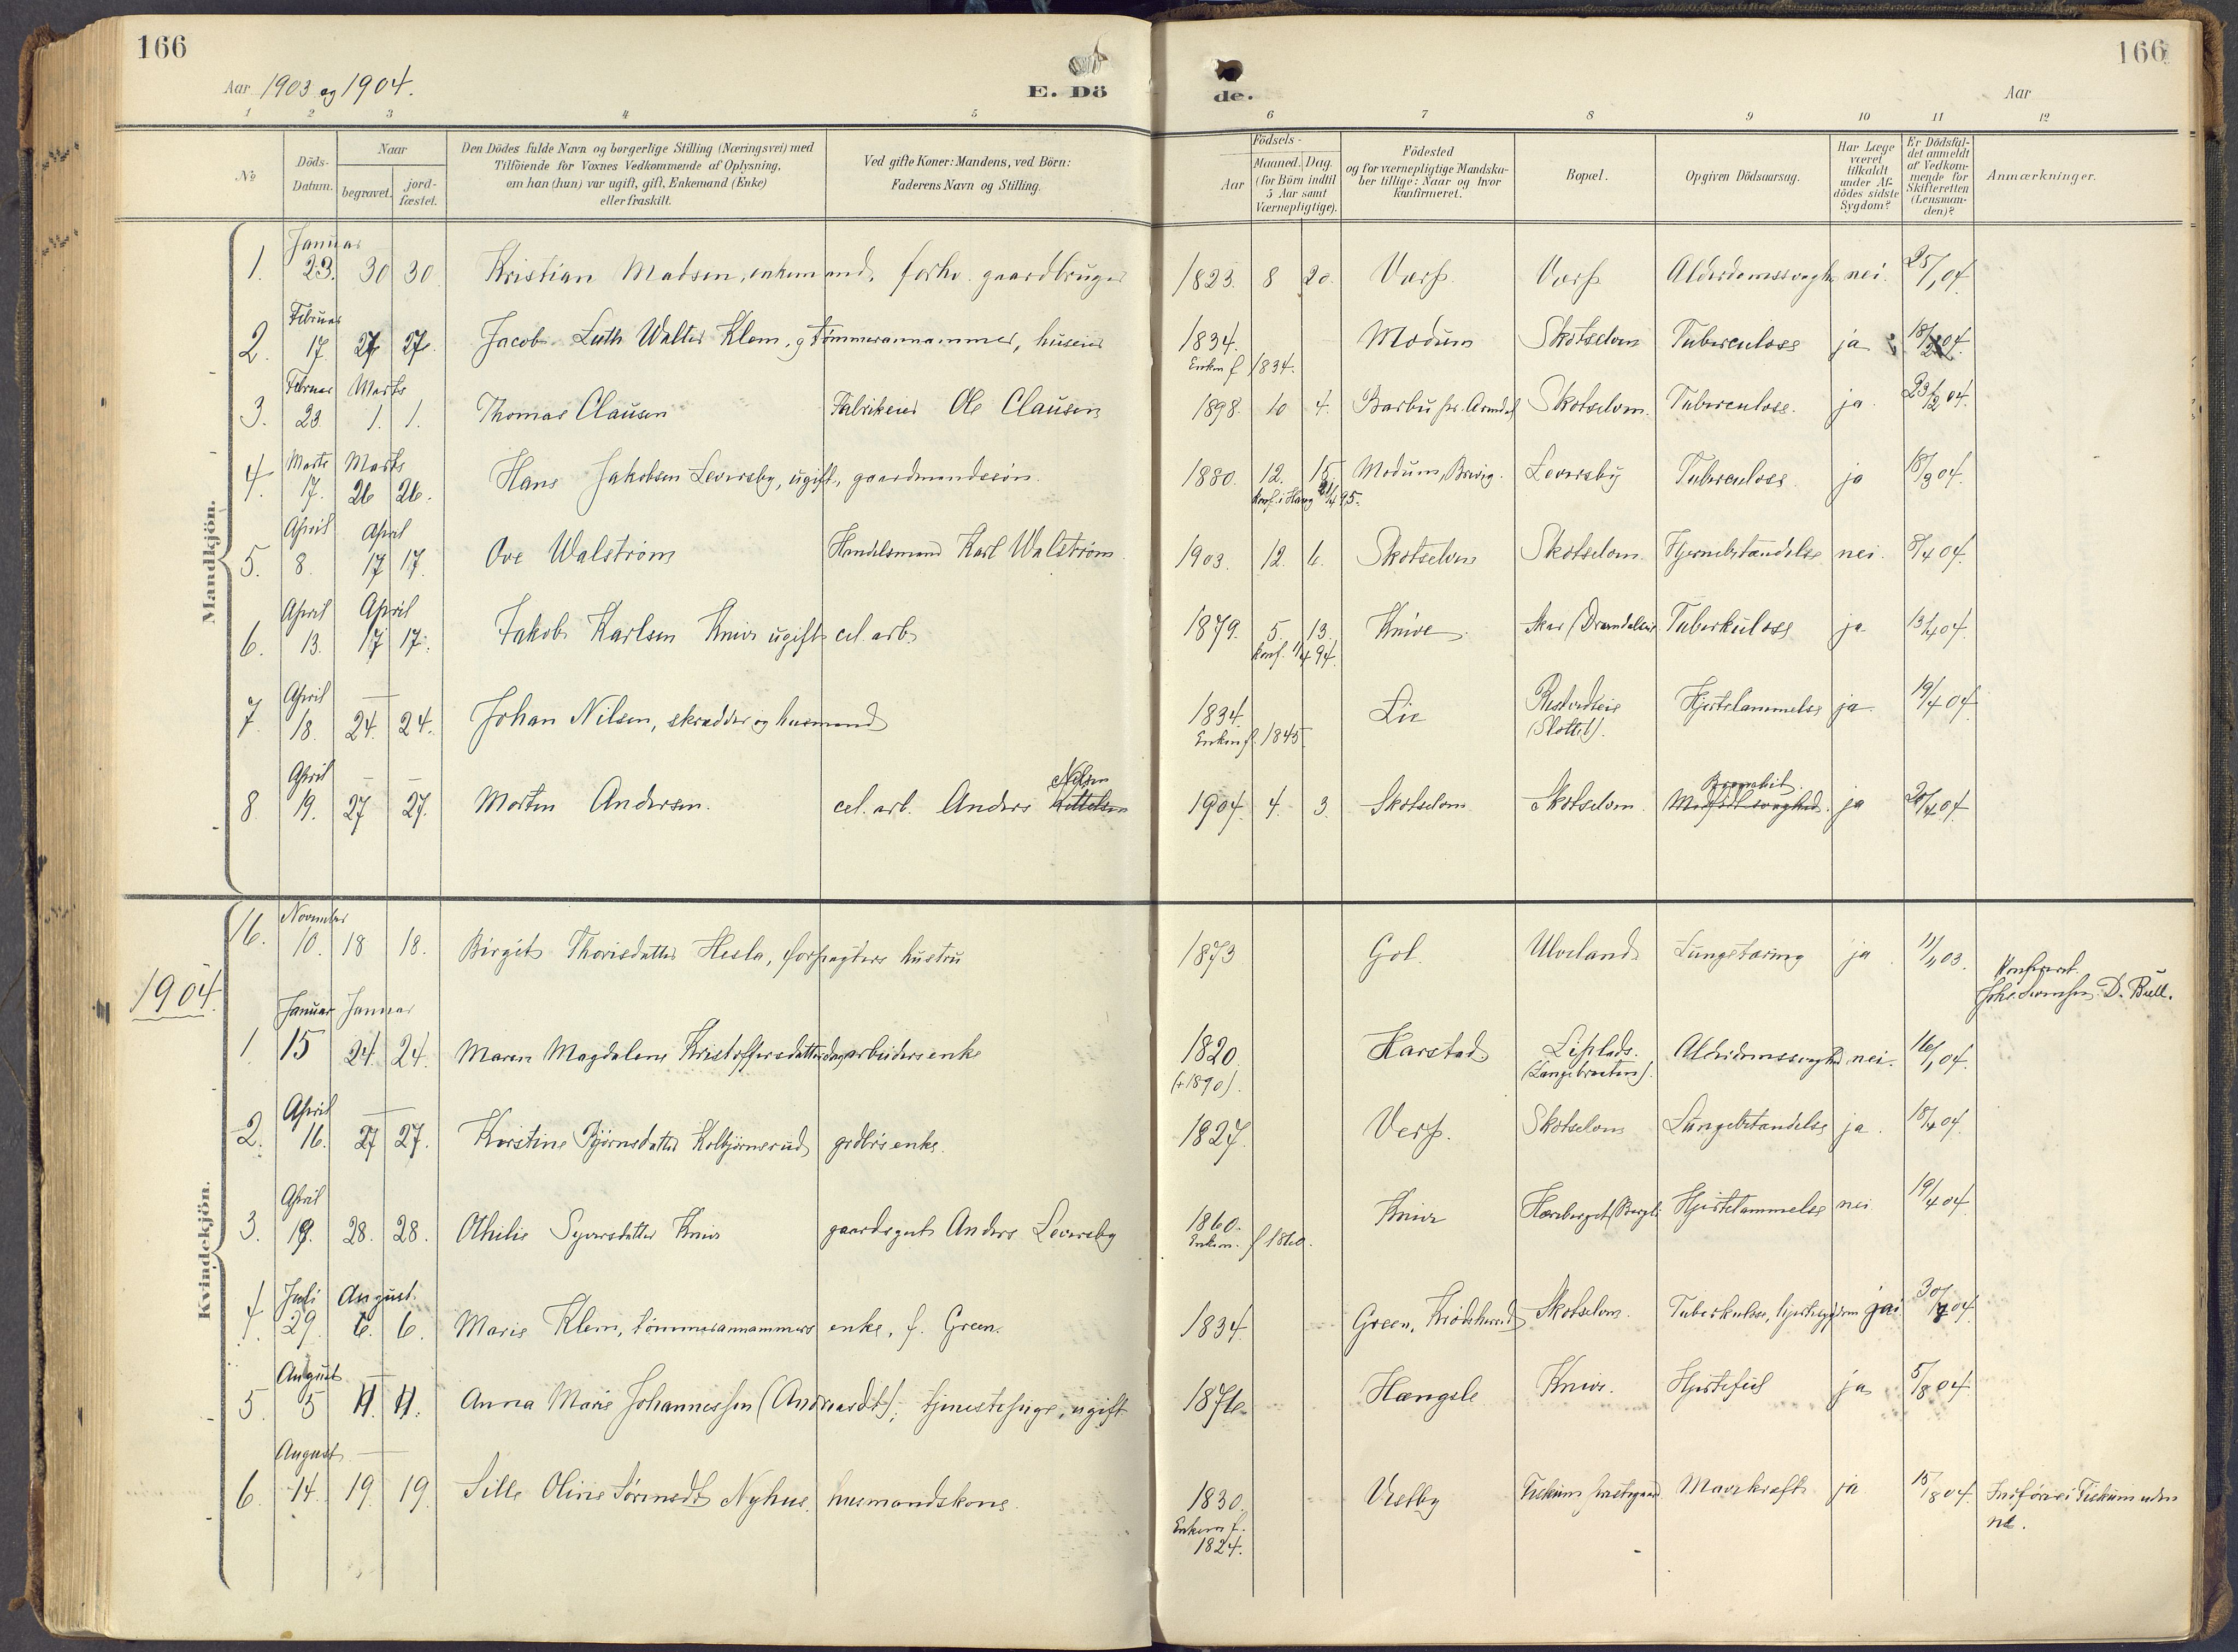 166
166
Aar 1903 og 1904.
E. Dö
de.
Aar
1 2 3 4 5 6 7 8 9 10 11 12
No
Döds-Datum.
Naar
begravet.
jord-fæstet.
Den Dödes fulde Navn og borgerlige Stilling (Næringsvei) med
Tilföiende for Voxnes Vedkommende af Oplysning,
om han (hun) var ugift, gift, Enkemand (Enke)
eller fraskilt.
Ved gifte Koner: Mandens, ved Börn:
Faderens Navn og Stilling.
Födsels-
Aar
Maaned. Dag.
(for Börn indtil
5 Aar samt
Værnepligtige).
Födested
og for værnepligtige Mandska-
ber tillige: Naar og hvor
konfirmeret.
Bopæl.
Opgiven Dödsaarsag.
Har Læge
været
tilkaldt
under Af-
dödes sidste
Sygdom?
Er Dödsfal-
det anmeldt
af Vedkom-
mende for
Skifteretten
(Lensman-
den)?
Anmærkninger.
Mandkjön.
Januar
1. 23. 30 30 Kristian Madsen, enkemand, forhv. gaardbruger 1823. 8 20. nei. 25/1 04.
Februar
2. 17 27 27. Jacob Luth Walter Klem, g tømmerannammer, huseier 1834. Modum Skotselven Tuberculose ja 18/2 04.
Enken f. 1834.
Februar Marts
3. 23 1. 1. Thomas Clausen Fabrikeier Ole Clausen 1898. 10 4. Barbu pr. Arendal Skotselven. Tuberculose. ja 23/2 04.
Marts Marts
4. 17. 26 26. Hans Jakobsen Leversby, ugift, gaardmandssøn. 1880. 12. 15 Modum, Leversby Tuberculose. ja 18/3 04.
konf. i Haug 95.
April April
5. 8. 17 17. Ove Walstrøm Handelsmand Karl Walstrøm 1903. 12. 6. Skotselven Skotselven Hjernebetændelse nei. 8/4 04.
April April
6. 13. 17 17. Jakob Karlsen Knive ugift cel. arb. 1879. 5. 13. Knive Tuberkulose ja 13/4 04.
konf. 94.
April —
7. 18. 24. 24. Johan Nilsen, skrædder og husmand 1834. Lie Hjertelammelse ja 19/4 04
Enken f. 1845. (Slottet).
April — —
8 19. 27 27. Morten Andersen. cel. arb. Anders Nilsen Kittelsen 1904. 4. 3. Skotselven Skotselven. Bronchit. Medfødt svaghed. ja 20/4 04.
Kvindekjön.
November
16. 10. 18 18. Birgit Thorisdatter Hesla, forpagters hustru 1873 Gol. Ulveland Lungetæring ja 11/11 03.
D. Bull.
1904.
Januar Januar
1 15 24. 24. Maren Magdalene Kristoffersdatter dagarbeiders enke 1820. Harstad Alderdomssvaghed nei. 16/1 04.
(+ 1890). (Langebraaten).
April —
2. 16. 27 27. Kerstine Bjørnsdatter Kolbjørnsrud grdbr's enke. 1827. Skotselven Lungebetændelse ja. 18/4 04.
April
3. 19. 28. 28. Othilie Syversdatter Knive gaardsgut Anders Leversby 1860. Knive Hjertelammelse nei 19/4 04
Enkem. f 1860.
Juli August.
4. 29 6. 6. Marie Klem, tømmerannammers enke, f. Green. 1834 Green, Krødsherred Skotselven. Tuberkulose, hjertesygdom ja 30/7 04
August —
5. 5 11. 11. Anna Marie Johannessen; tjenestepige, ugift 1876 Hængsle Knive. Hjertefeil ja 5/8 04
August —
6. 14. 19. 19. Sille Oline Nyhus, husmandskone. 1830. Vestby Mavekræft ja 15/8 04. Indføres i Fiskum uden
Enkem. f. No.
1824.